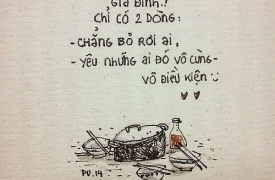 GIA ĐÌNH.!
CHỈ CÓ 2 DÒNG:
- CHẲNG BỎ RƠI AI,
- YÊU NHỮNG AI ĐÓ VÔ CÙNG -
VÔ ĐIỀU KIỆN
PU.14